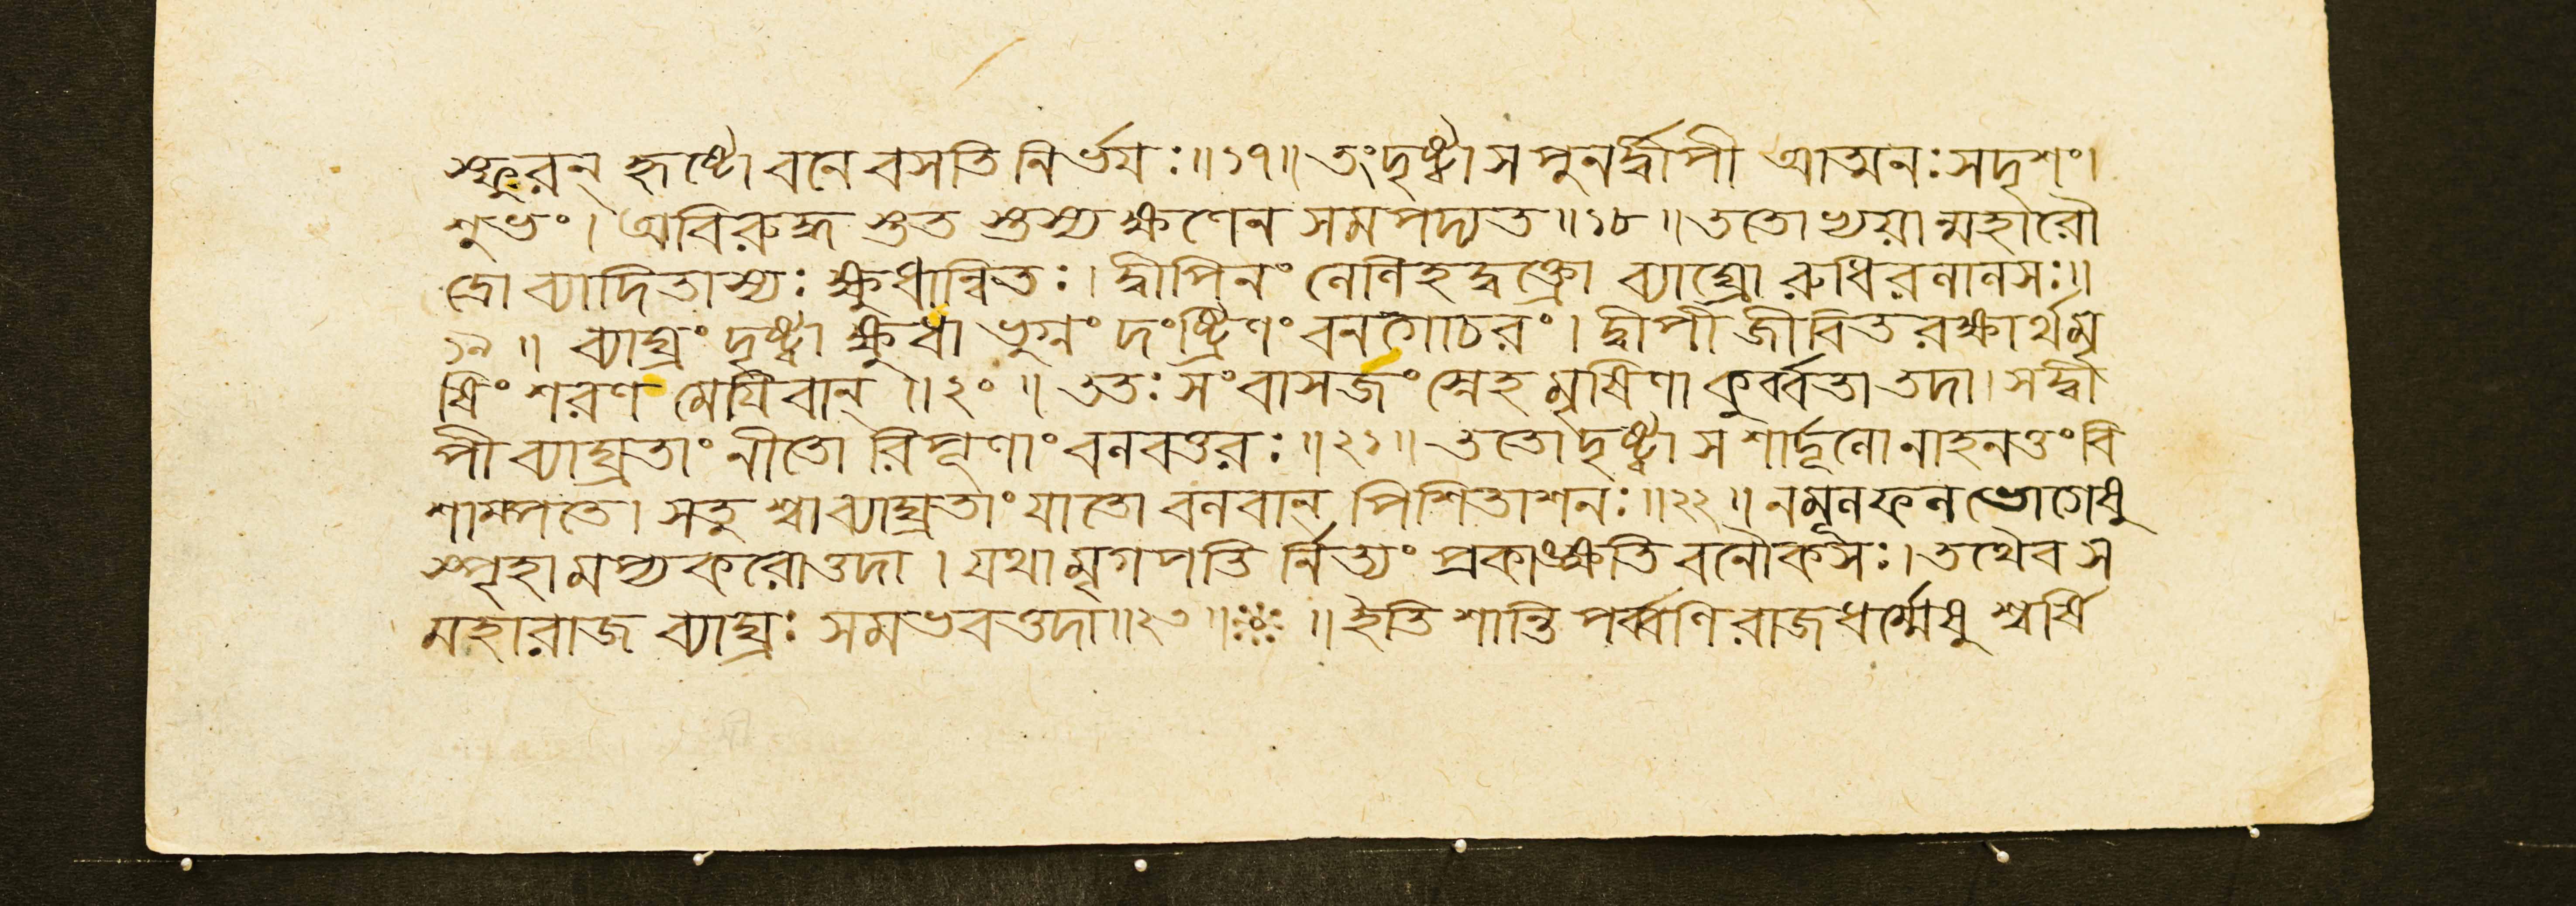 স্ফুরন্ হৃষ্টো বনে বসতি নির্ভয়ঃ॥১৭॥ তংদৃষ্ট্বা স পুনর্দ্বীপী আত্মনঃ সদৃশং।
শুভং। অবিরুদ্ধ শুত শুস্য ক্ষণেন সমপদ্যত॥১৮॥ ততো ভ্যয়ান্মহারৌ
দ্রো ব্যাদিতাস্যঃ ক্ষুধান্বিতঃ। দ্বীপিনং লেলিহদ্বক্ত্রো ব্যাঘ্রো রুধিরলালসঃ॥
১৯॥ ব্যাঘ্রং দৃষ্ট্বা ক্ষুধা ভুগ্নং দংষ্ট্রিণং বনগোচরং। দ্বীপী জীবিত রক্ষার্থমৃ
ষিং শরণ মেয়িবান্॥২০॥ ততঃ সংবাসজং স্নেহ মৃষিণা কুর্ব্বতা তদা। স দ্বী
পী ব্যাঘ্রতাং নীতো রিপূণাং বলবত্তরঃ॥২১॥ ততো দৃষ্ট্বা স শার্দূলো নাহনত্তং বি
শাম্পতে। সতু শ্বা ব্যাঘ্রতাং যাতো বলবান্ পিশিতাশনঃ॥২২॥ নমূলফলভোগেষু
স্পৃহামপ্যকরোত্তদা। যথা মৃগপতি র্নিত্যং প্রকাঙ্ক্ষতি বনৌকসঃ। তথৈব স
মহারাজ ব্যাঘ্রঃ সমভবত্তদা॥২৩॥ ॥ ইতি শান্তি পর্ব্বণি রাজধর্ম্মেষু শ্বর্ষি